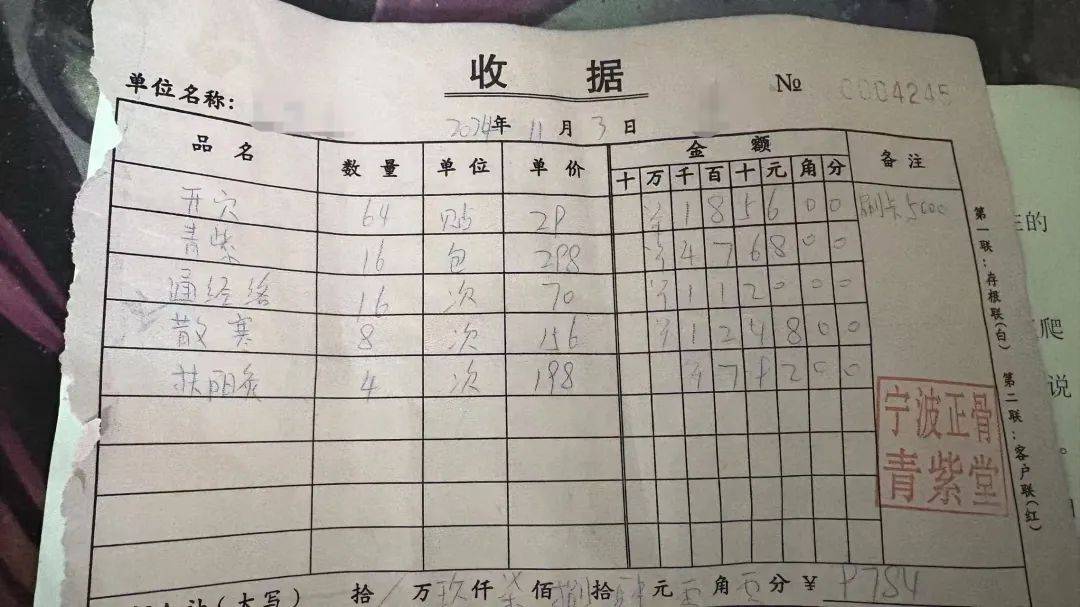 收据
№ 0004245
单位名称:
2024年 11月 3日
品名 数量 单位 单价 金额 备注
十 万 千 百 十 元 角 分
开穴 64 贴 29 ¥ 1 8 5 6 0 0 刷卡5000
青紫 16 包 298 ¥ 4 7 6 8 0 0
通经络 16 次 70 ¥ 1 1 2 0 0 0
散寒 8 次 156 ¥ 1 2 4 8 0 0
扶阳灸 4 次 198 ¥ 7 9 2 0 0
宁波正骨
青紫堂
第一联:存根联(白) 第二联:客户联(红)
(大写) 拾 万 玖 仟 柒 佰 捌 拾 肆 元 角 分 ¥ 9784
在的
爬
说
。